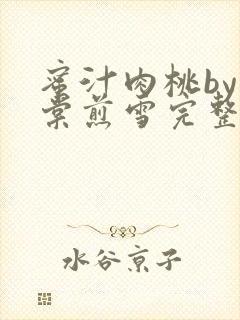 蜜汁肉桃by
棠煎雪完整
水谷京子